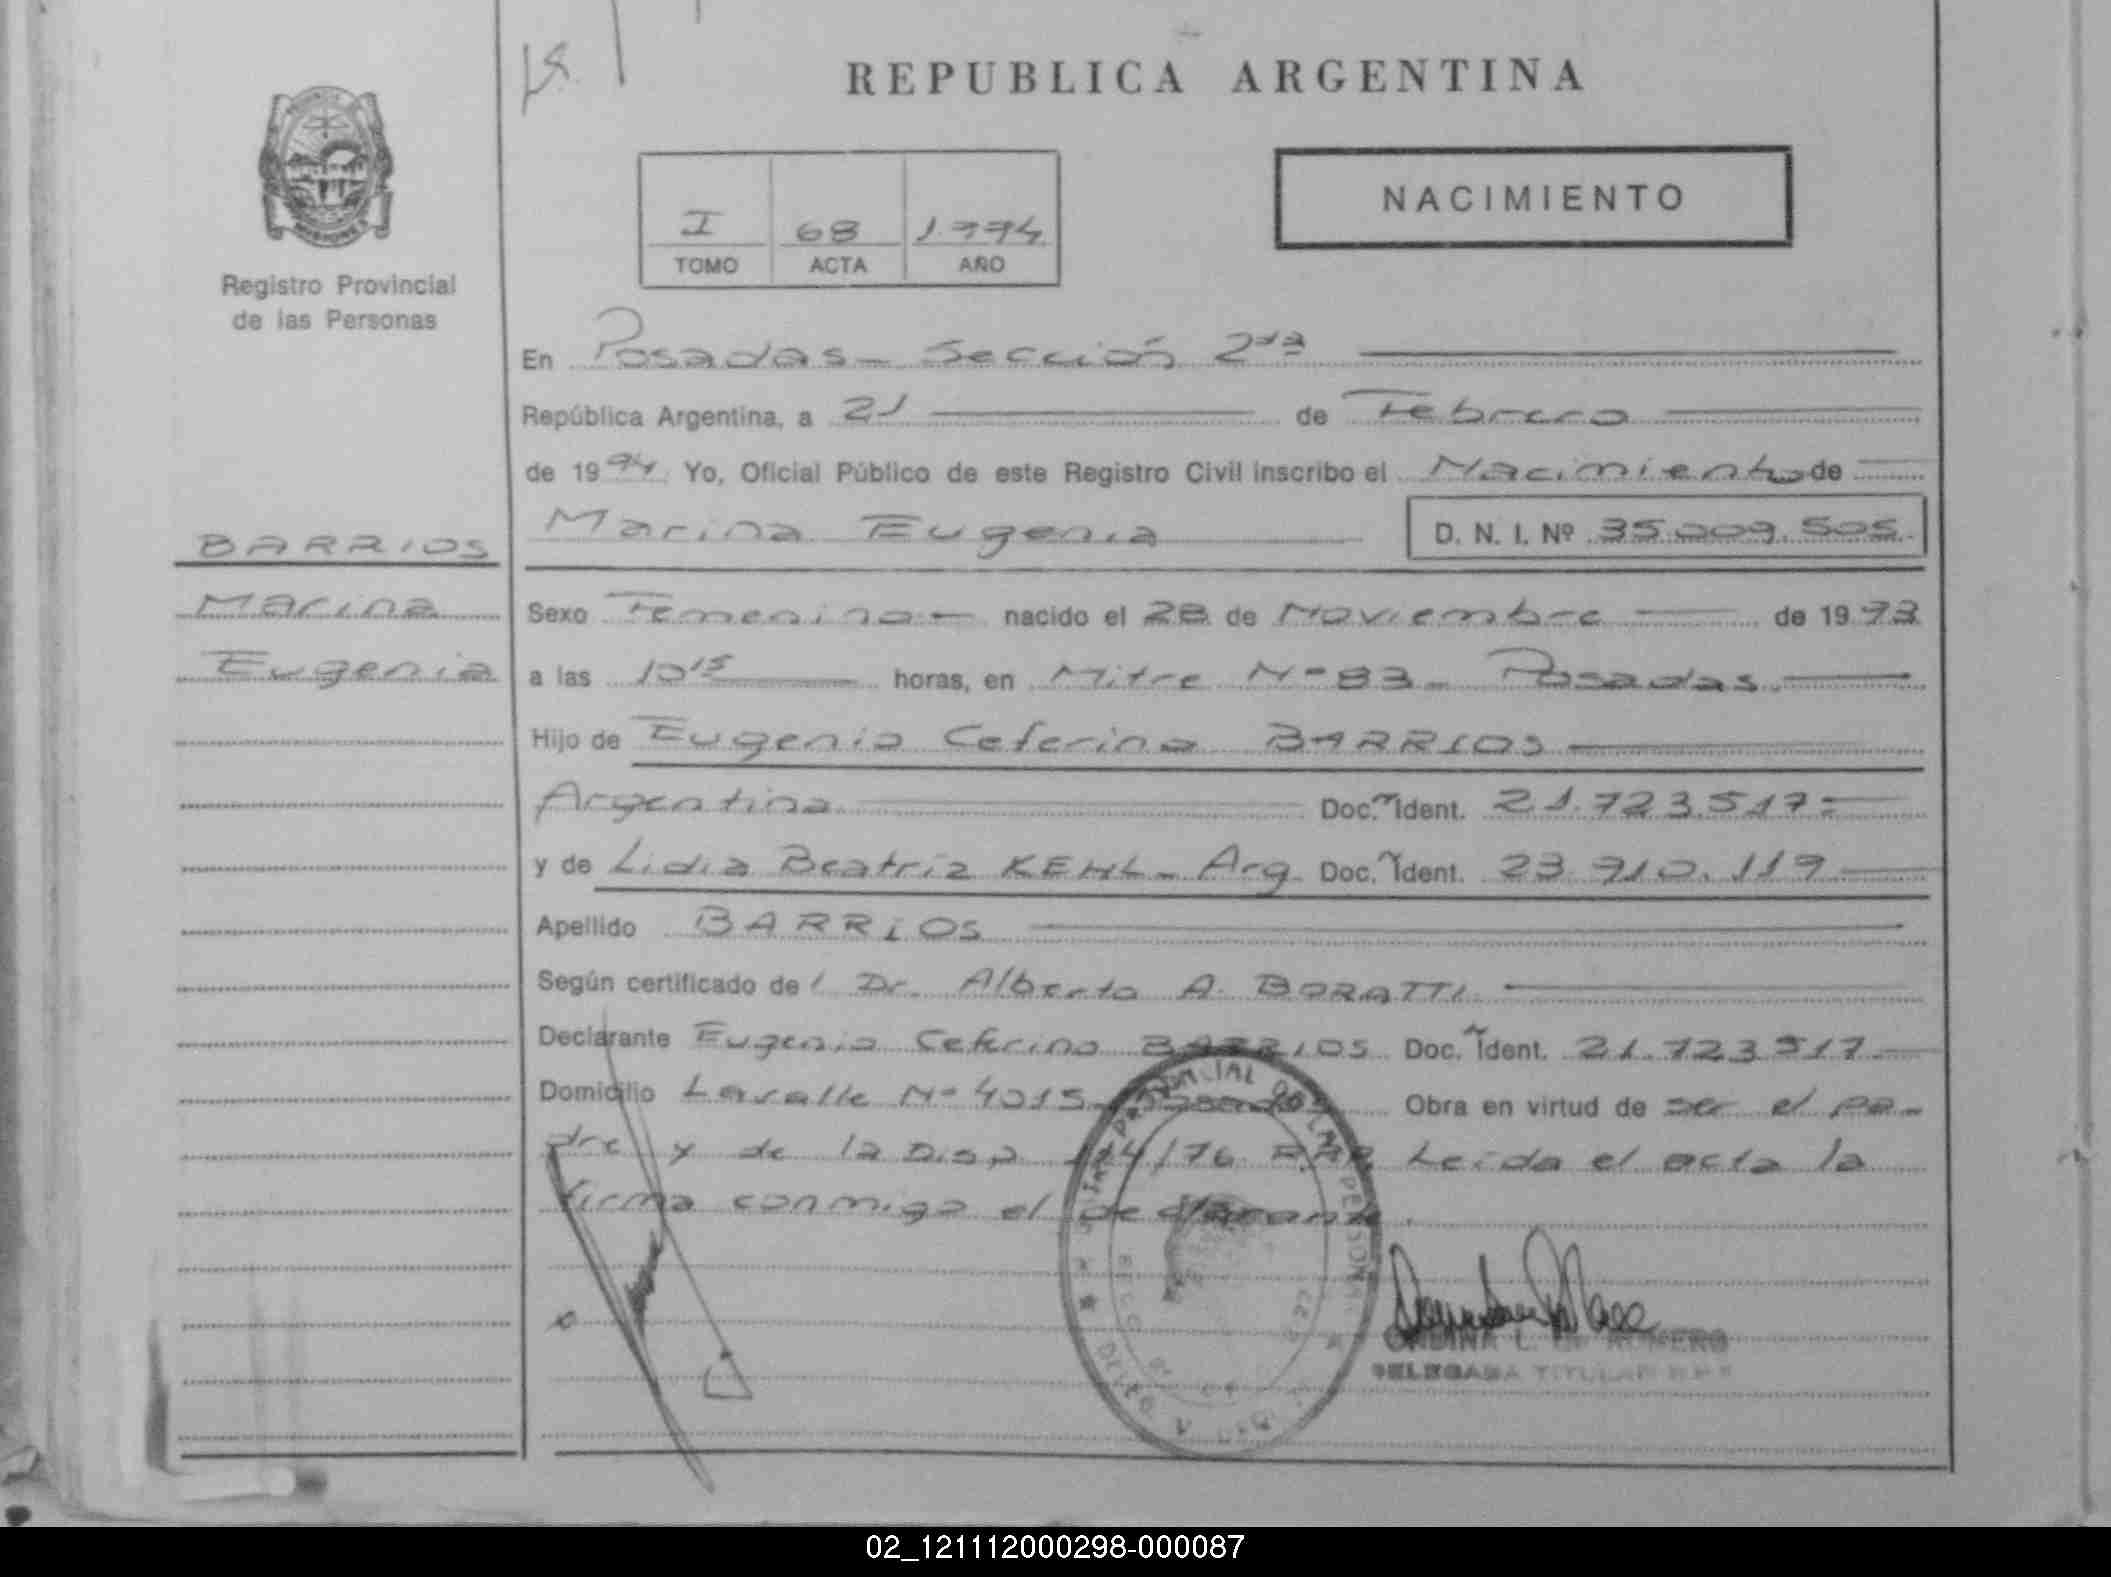 REPUBLICA ARGENTINA
NACIMIENTO
I 68 1.994
TOMO ACTA AÑO
Registro Provincial
de las Personas
MISIONES
En Posadas - Sección 2da
República Argentina, a 21 de Febrero
de 1994 Yo, Oficial Público de este Registro Civil inscribo el Nacimiento de
Marina Eugenia D. N. I. Nº 35.009.505.
BARRIOS
Marina
Eugenia
Sexo Femenino - nacido el 28 de Noviembre de 1993
a las 10 15 horas, en Mitre Nº 83 - Posadas.
Hijo de Eugenio Ceferino BARRIOS
Argentina Doc. Ident. 21.723.517 =
y de Lidia Beatriz KEHL - Arg. Doc. Ident. 23.910.119
Apellido BARRIOS
Según certificado del Dr. Alberto A. BORATTI
Declarante Eugenio Ceferino BARRIOS Doc. Ident. 21.723.517
Domicilio Lavalle Nº 4015 - Posadas Obra en virtud de ser el pa-
dre y de la Disp. /76 Leida el acta la
firma conmigo el declarante.
L. DE ROMERO
DELEGADA TITULAR R.P.P.
02_121112000298-000087